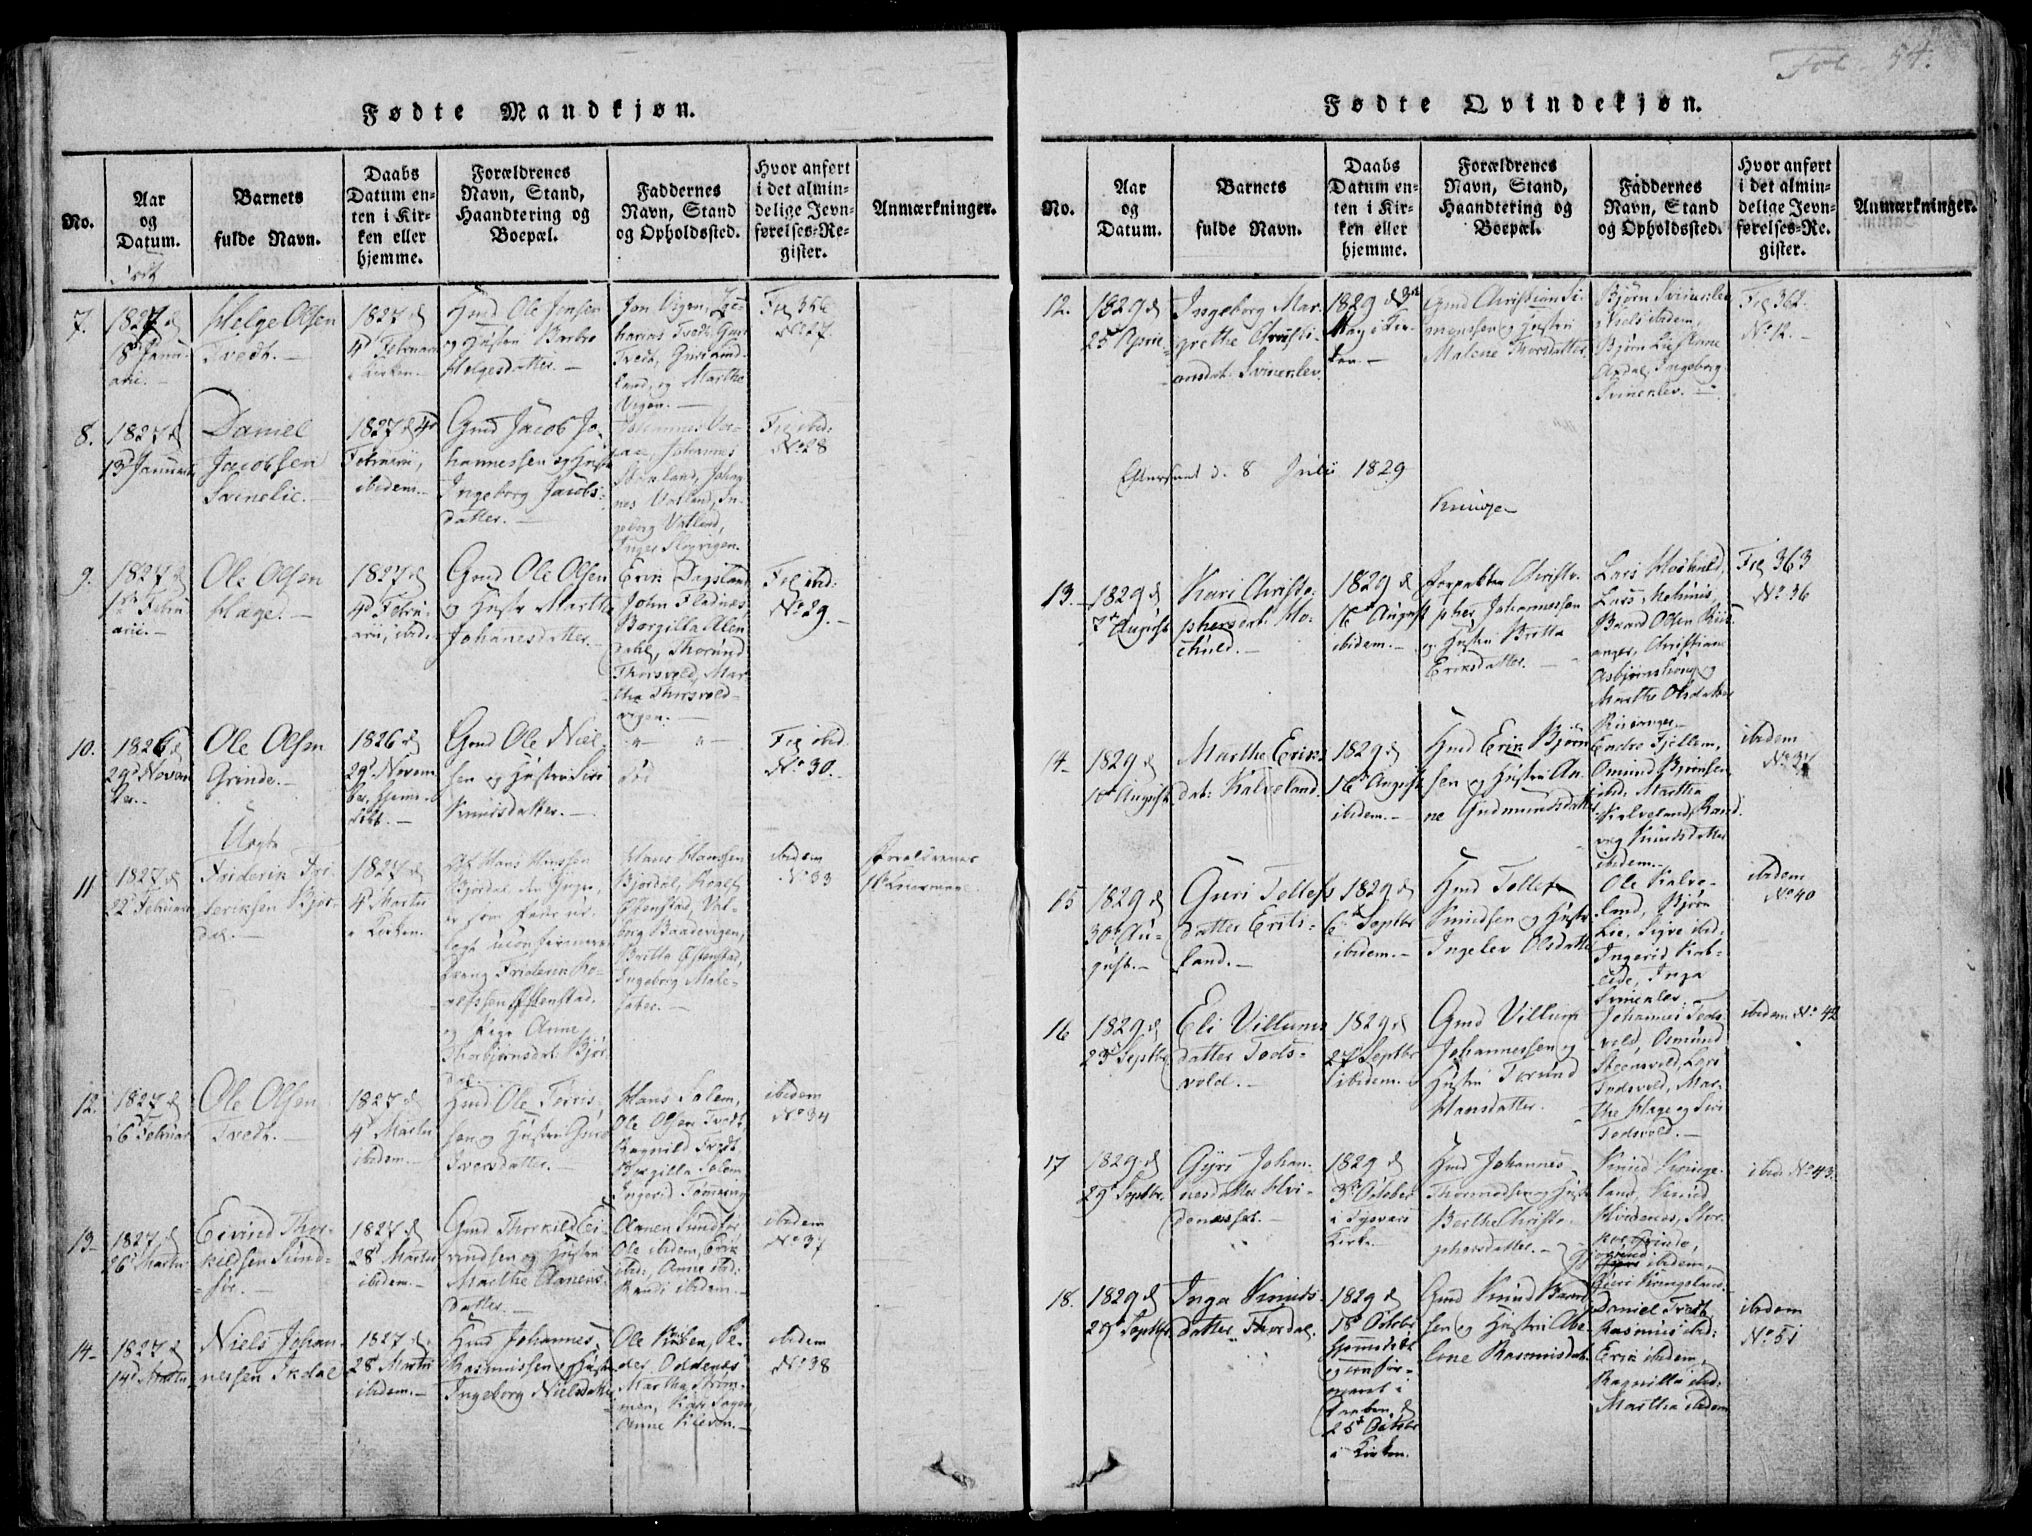 Fol 54.
Fødte Mandkjøn.
No.
Aar
og
Datum.
Barnets
fulde Navn.
Daabs
Datum en-
ten i Kir-
ken eller
hjemme.
Forældrenes
Navn, Stand,
Haandtering og
Boepæl.
Faddernes
Navn, Stand
og Opholdssted.
Hvor anført
i det almin-
delige Jevn-
førelses-Re-
gister.
Anmærkninger.
7.
1827 d
18 Janu
arii.
Helge Olsen
Tvedt.
1827 d
4d Februarii
i Kirken.
Gmd Ole Jensen
og Hustrue Barbro
Helgesdatter.
Jon Vigen, Zac
harias Tvedt, Guri
Tvedt,
og Martha
Vigen.
Fol 356
No 27
8.
1827 d
13d Januarii
Daniel
Jacobsen
Svinelie.
1827 d 4d
Februarii,
ibidem.
Gmd Jacob Jo-
hannessen og Hustr
Ingeborg Jacobs-
datter.
Johannes
Johannes
Johan
nes Vatland, In
geborg Vatland,
Fol ibid:
No 28
9.
1827 d
1st Febru
arii.
Ole Olsen
Hage.
1827 d
4d Febru
arii, ibid.
Gmd Ole Olsen
og Hustr Martha
Johanesdatter.
Erik Dagsland
John Fladnæs,
Borgilla Alen
dahl, Thorund
Thorsvold, Mar
tha Thorsvold-
vigen.
Fol ibid:
No 29.
10.
1826 d
29d Novem
ber.
Ole Olsen
Grinde.
1826 d
29d Novem
ber, hjemme
døbt.
Gmd Ole Niel
sen og Hustru Siri
Knudsdatter.
død
Fol ibid.
No 30.
11
1827 d
22d Februarii
Uægte
Friderik Fri
deriksen Bjør-
dal.
1827 d
4d Martii
i Kirken.
Hans Hanssen
Bjørdal
som fader ud-
lagt
Dreng Friderik Ro-
alfssen Østenstad,
og Pige Anne
Thorbjørnsdat: Bjør
dal.
Hans Hanssen
Bjørdal, Roalf
Østenstad, Val-
borg Baadevigen,
Britta Østenstad,
Ingeborg Male-
ibidem
No 33
Forældrenes
12.
1827 d
16 Februar
Ole Olsen
Tvedt.
1827 d
4d Martii
ibidem.
Gmd Ole Torris-
sen og Hustru Guro
Iversdatter.
Hans Solem,
Ole Olsen Tvedt,
Ragnild Tvedt
Borgilla Solem
Ingerid Tømmering
ibidem
No 34
13
1827 d
26d Martii
Eivind Thor-
kildsen Sund-
før.
1827 d
28d Martii
ibidem.
Gmd Thorkild Ei-
vindsen og Hustru
Marthe Aanens-
datter.
Aanen Sundfør
Ole ibidem, Erik
ibid:, Anne ibid:
Randi ibidem.
ibidem
No 37
14
1827 d
14d Martii
Niels Johan-
nessen Ikdal
1827 d
28d Martii
ibidem.
Gmd Johannes
Rasmussen og Hustr
Ingeborg Nielsdatter
Ole Ps
der Oddenæs
Martha Strøm-
men, Kari
Anne Kleven.
ibidem
No 38
Fødte Qvindekjøn.
No.
Aar
og
Datum.
Barnets
fulde Navn.
Daabs
Datum en-
ten i Kir-
ken eller
hjemme.
Forældrenes
Navn, Stand,
Haandtering og
Boepæl.
Faddernes
Navn, Stand
og Opholdssted.
Hvor anført
i det almin-
delige Jevn-
førelses-Re-
gister.
Anmærkninger.
12.
1829 d
25 April
Ingeborg Mar-
grethe Christi-
ansdat: Svinenlev
1829 d 3d
May i Kir
ken.
Gmd Christian Si
monssen og Hustru
Malene Thorsdatter
Bjørn Svinenlev
Niels ibidem,
Bjørn Lie
Axdal, Ingeborg
Svinenlev.
Fol 362
No 12.
d. 8 Julii 1829
13.
1829 d
7d August
Kari Christo-
phersdat: Ho-
chuld.
1829 d
16d August
ibidem.
Forpagter Christo-
pher Johannessen
og Hustru Britta
Eriksdatter.
Lars Hochuld,
Lars Mehuus,
Baard Olsen Riis-
anger, Christian
Asbjørnshoug og
Marthe Olsdatter
Riisanger.
Fol 363
No 36
14
1829 d
10d August
Marthe Eriks
dat: Kalveland.
1829 d
16d August
ibidem.
Gmd Erik Bjørn
sen og Hustru An
ne Gudmundsdatter
Endre Fjellem,
Omund Bjørnsen
ibid: Martha
Kalveland, Rand
veg Knudsdatter
ibidem.
ibidem
No 37
15
1829 d
30d Au-
gust.
Guri Tollefs
datter Erits-
land.
1829 d
6d Septbr
ibidem.
Gmd Tollef
Knudsen og Hustr
Ingelev Olsdatter
Ole Kalve-
land, Bjørn
Lie, Sigve ibid:
Ingerid Kat-
Inga
Svinenlev.
ibidem
No 40
16
1829 d
23d Septbr
Eli Villums
datter Tods-
vold.
1829 d
27d Septbr
ibidem.
Gmd Villum
Johannessen og
Hustru Torund
Hansdatter.
Johannes Tods-
vold, Osmund
Steensvold, Lars
Todsvold, Mar-
the Hage og Siri
Todsvold.
ibidem No 42
17
1829 d
29d Septbr.
Gyri Johan-
nesdatter Hvi-
denæsset.
1829 d
3d October
i Tysvær
Kirke.
Gmd Johannes
Thormodsen og Hustr
Berthe Christo-
phersdatter.
Knud Kringe-
land, Knud
Hvidenæs, Thor-
Grinde,
ibidem,
Guri Kringeland.
ibid No 43.
18.
1829 d
29d Septbr
Inga Knuds
datter Thordal.
1829 d
18d October
hjemmedøbt
og confir-
meret i
Daaben d
25d October
i Kirken.
Gmd Knud Baard
sen og Hustru Abe-
lone Rasmusdat:
Daniel Tvedt
Rasmus ibid:
Erik ibidem,
Ragnilla ibid:
Martha ibidem
ibidem
No 51